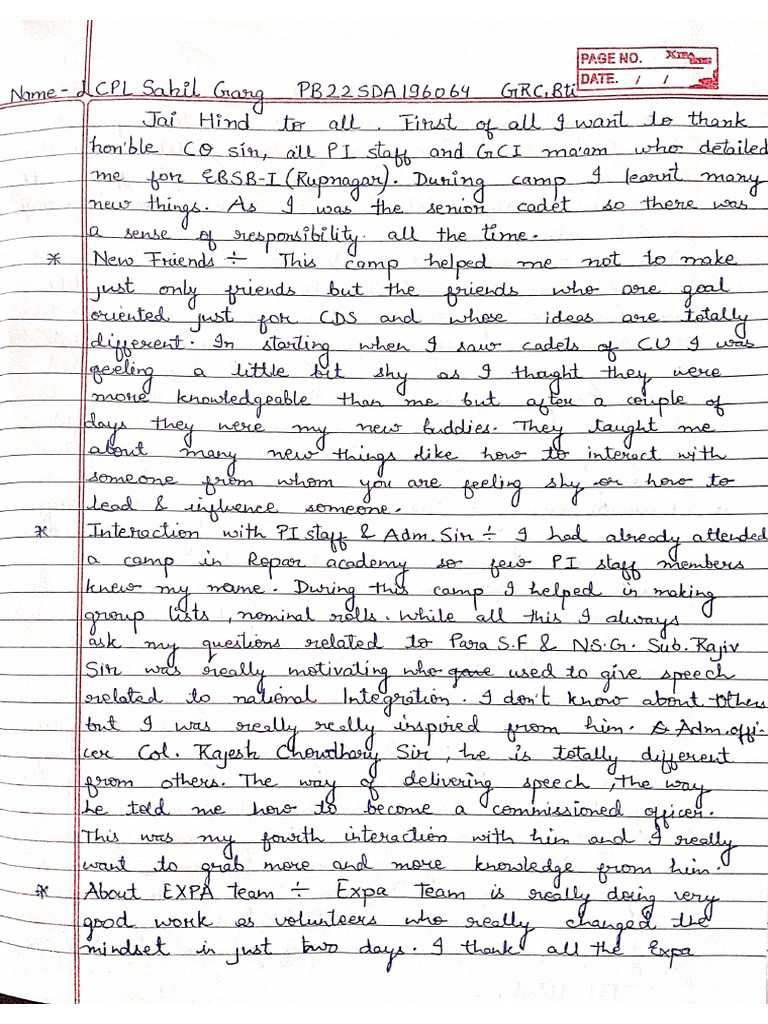 PAGE NO.
DATE. / /
Name - LCPL Sahil Garg PB22SDA196064 GRC, Bti
Jai Hind to all. First of all I want to thank
hon'ble CO sir, all PI staff and GCI ma'am who detailed
me for EBSB-I (Rupnagar). During camp I learnt many
new things. As I was the senior cadet so there was
a sense of responsibility all the time.
* New Friends ÷ This camp helped me not to make
just only friends but the friends who are goal
oriented just for CDS and whose ideas are totally
different. In starting when I saw cadets of CU I was
feeling a little bit shy as I thaght they were
more knowledgeable than me but after a couple of
days they were my new buddies. They taught me
about many new things like how to interact with
someone from whom you are feeling shy or how to
lead & influence someone.
* Interaction with PI staff & Adm. Sir ÷ I had already attended
a camp in Ropar academy so few PI staff members
knew my name. During this camp I helped in making
group lists, nominal rolls. While all this I always
ask my questions related to Para S.F & NS.G. Sub. Rajiv
Sir was really motivating who gave used to give speech
related to national Integration. I don't know about others
but I was really really inspired from him. & Adm. offi-
cer Col. Rajesh Chowdhary Sir, he is totally different
from others. The way of delivering speech, the way
he told me how to become a commissioned officer.
This was my fourth interaction with him and I really
want to grab more and more knowledge from him.
* About EXPA team ÷ Expa Team is really doing very
good work as volunteers who really changed the
mindset in just two days. I thank all the Expa